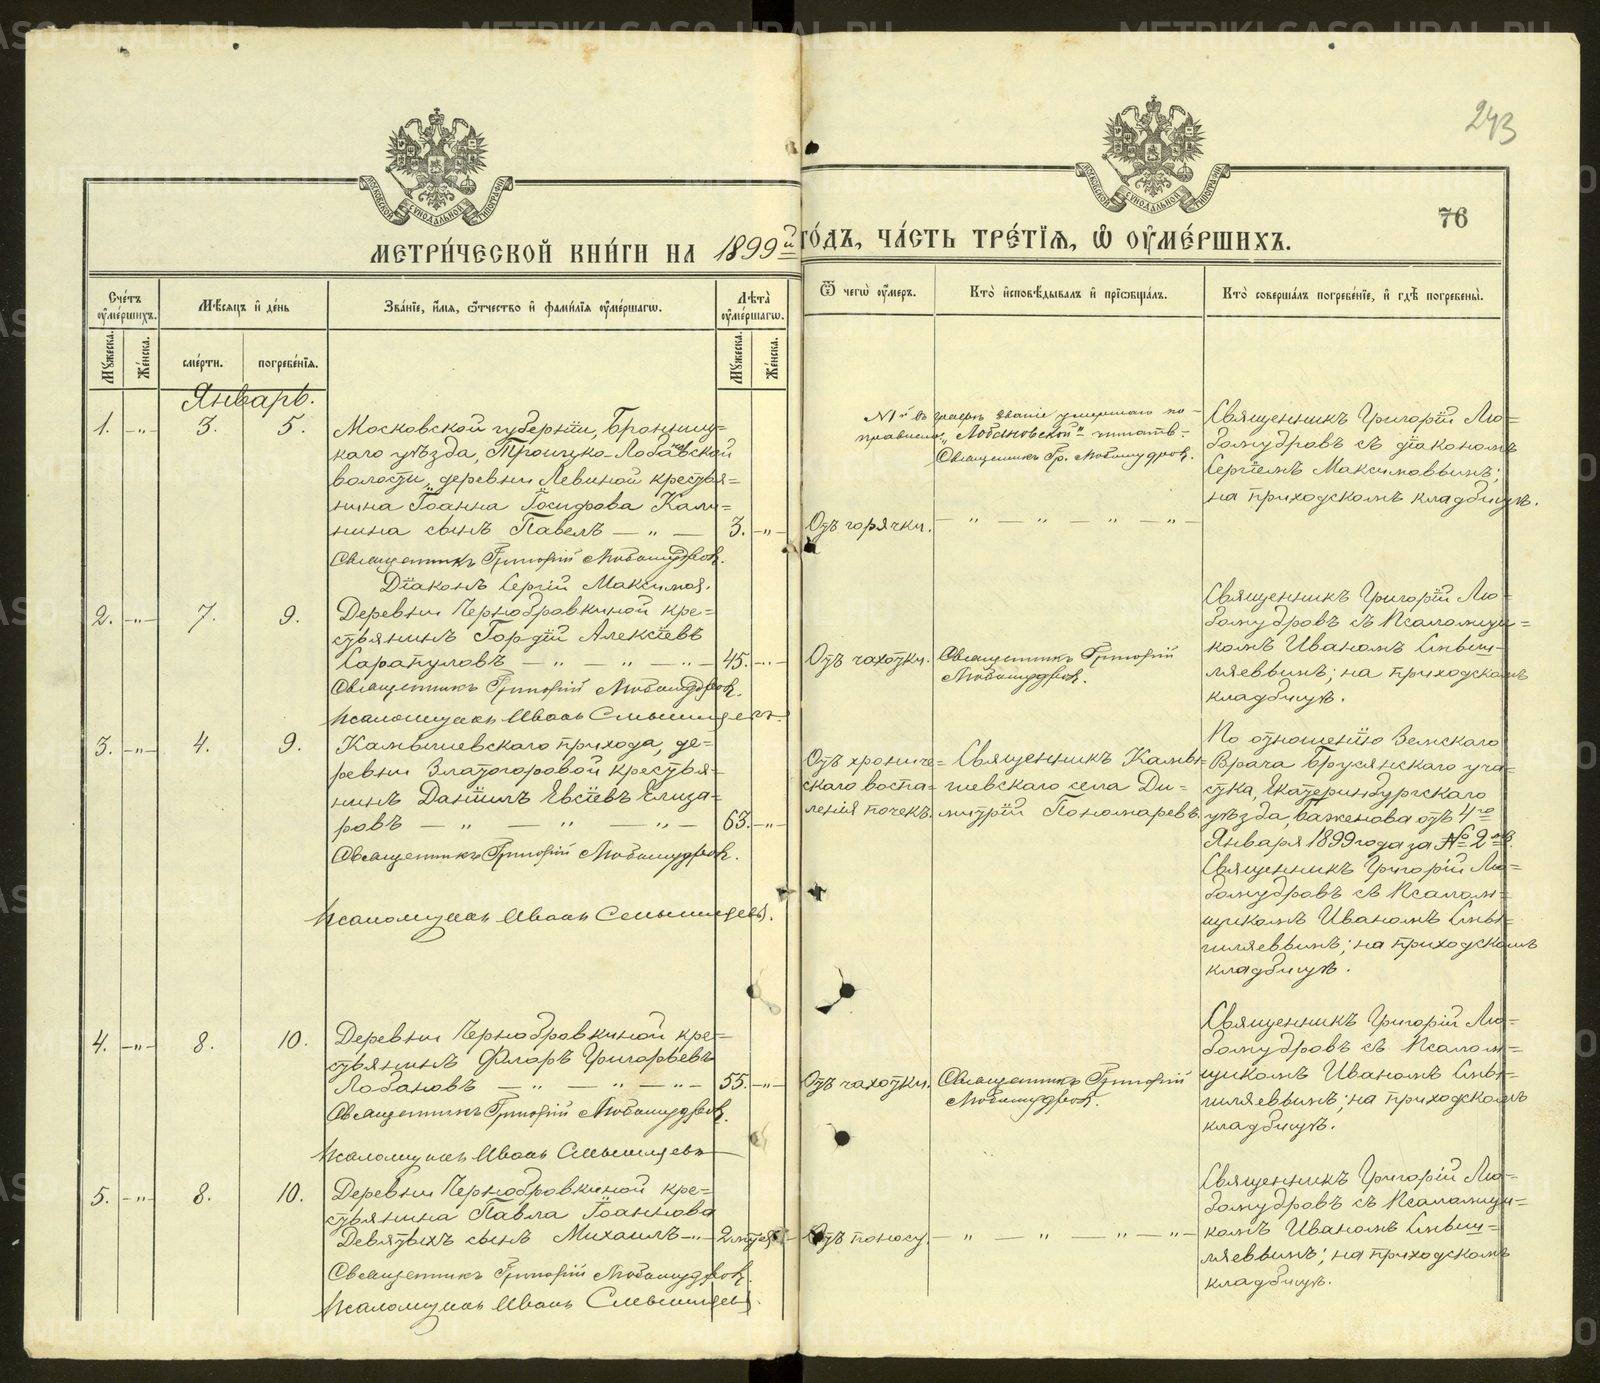 243
76
МОСКОВСКОЙ СѴНОДАЛЬНОЙ ТИПОГРАФІИ
МОСКОВСКОЙ СѴНОДАЛЬНОЙ ТИПОГРАФІИ
МЕТРИ́ЧЕСКОЙ КНИ́ГИ НА 1899й ГО́ДЪ, ЧА́СТЬ ТРЕ́ТІѦ, Ѡ҆ ОУ҆МЕ́РШИХЪ.
Сче́тъ оу҆ме́ршихъ.
Мѣ́сѧцъ и҆ де́нь
Зва́нїе, и҆́мѧ, ѻ҆́тчество и҆ фами́лїѧ оу҆ме́ршагѡ.
Лѣ́та оу҆ме́ршагѡ.
Ѿ чегѡ̀ оу҆́меръ.
Кто̀ и҆сповѣ́дывалъ и҆ прїѡбща́лъ.
Кто̀ соверша́лъ погребе́нїе, и҆ гдѣ̀ погребены̀.
Мꙋ́жеска.
Же́нска.
сме́рти.
погребе́нїѧ.
Мꙋ́жеска.
Же́нска.
Январь.
1. -„- 3. 5.
Московской губерніи, Бронниц=
каго уѣзда, Троицко-Лобановской
волости, деревни Левиной крестья=
нина Іоанна Іосифова Кали=
нина сынъ Павелъ — „ —
3. -„-
Священникъ Григорій Любомудровъ.
Діаконъ Сергій Максимовъ.
№ 1й въ графѣ званіе умершаго по-
правкою „Лобановской" читать.
Священникъ Гр. Любомудровъ.
Отъ горячки.
— „ — „ — „ — „ —
Священникъ Григорій Лю=
бомудровъ съ діакономъ
Сергіемъ Максимовымъ;
на приходскомъ кладбищѣ.
2. -„- 7. 9.
Деревни Чернобровкиной кре=
стьянинъ Гордій Алексіевъ
Сарапуловъ — „ — „ — „ —
45. -„-
Священникъ Григорій Любомудровъ.
Псаломщикъ Иванъ Смышляевъ.
Отъ чахотки.
Священникъ Григорій
Любомудровъ.
Священникъ Григорій Лю=
бомудровъ съ Псаломщи=
комъ Иваномъ Смыш=
ляевымъ; на приходскомъ
кладбищѣ.
3. -„- 4. 9.
Камышевскаго прихода, де=
ревни Златогоровой крестья=
нинъ Даніилъ Евсіевъ Елиза=
ровъ — „ — „ — „ —
63. -„-
Священникъ Григорій Любомудровъ.
Псаломщикъ Иванъ Смышляевъ.
Отъ хрониче=
скаго воспа=
ленія почекъ.
Священникъ Камы=
шевскаго села Ди=
митрій Пономаревъ.
По отношенію Земскаго
Врача Брусянскаго уча=
стка, Екатеринбургскаго
уѣзда, Баженова отъ 4го
Января 1899 года за № 2мъ.
Священникъ Григорій Лю=
бомудровъ съ Псалом=
щикомъ Иваномъ Смы=
шляевымъ; на приходскомъ
кладбищѣ.
4. -„- 8. 10.
Деревни Чернобровкиной кре=
стьянинъ Флоръ Григорьевъ
Лобановъ — „ — „ — „ —
55. -„-
Священникъ Григорій Любомудровъ.
Псаломщикъ Иванъ Смышляевъ
Отъ чахотки.
Священникъ Григорій
Любомудровъ.
Священникъ Григорій Лю=
бомудровъ съ Псалом=
щикомъ Иваномъ Смы=
шляевымъ; на приходскомъ
кладбищѣ.
5. -„- 8. 10.
Деревни Чернобровкиной кре=
стьянина Павла Іоаннова
Девятыхъ сынъ Михаилъ -„-
Священникъ Григорій Любомудровъ.
Псаломщикъ Иванъ Смышляевъ.
Отъ поносу.
— „ — „ — „ — „ —
Священникъ Григорій Лю=
бомудровъ съ Псаломщи=
комъ Иваномъ Смыш=
ляевымъ; на приходскомъ
кладбищѣ.
METRIKI.GASO-URAL.RU